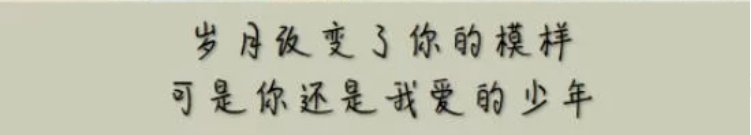 岁月改变了你的模样
可是你还是我爱的少年